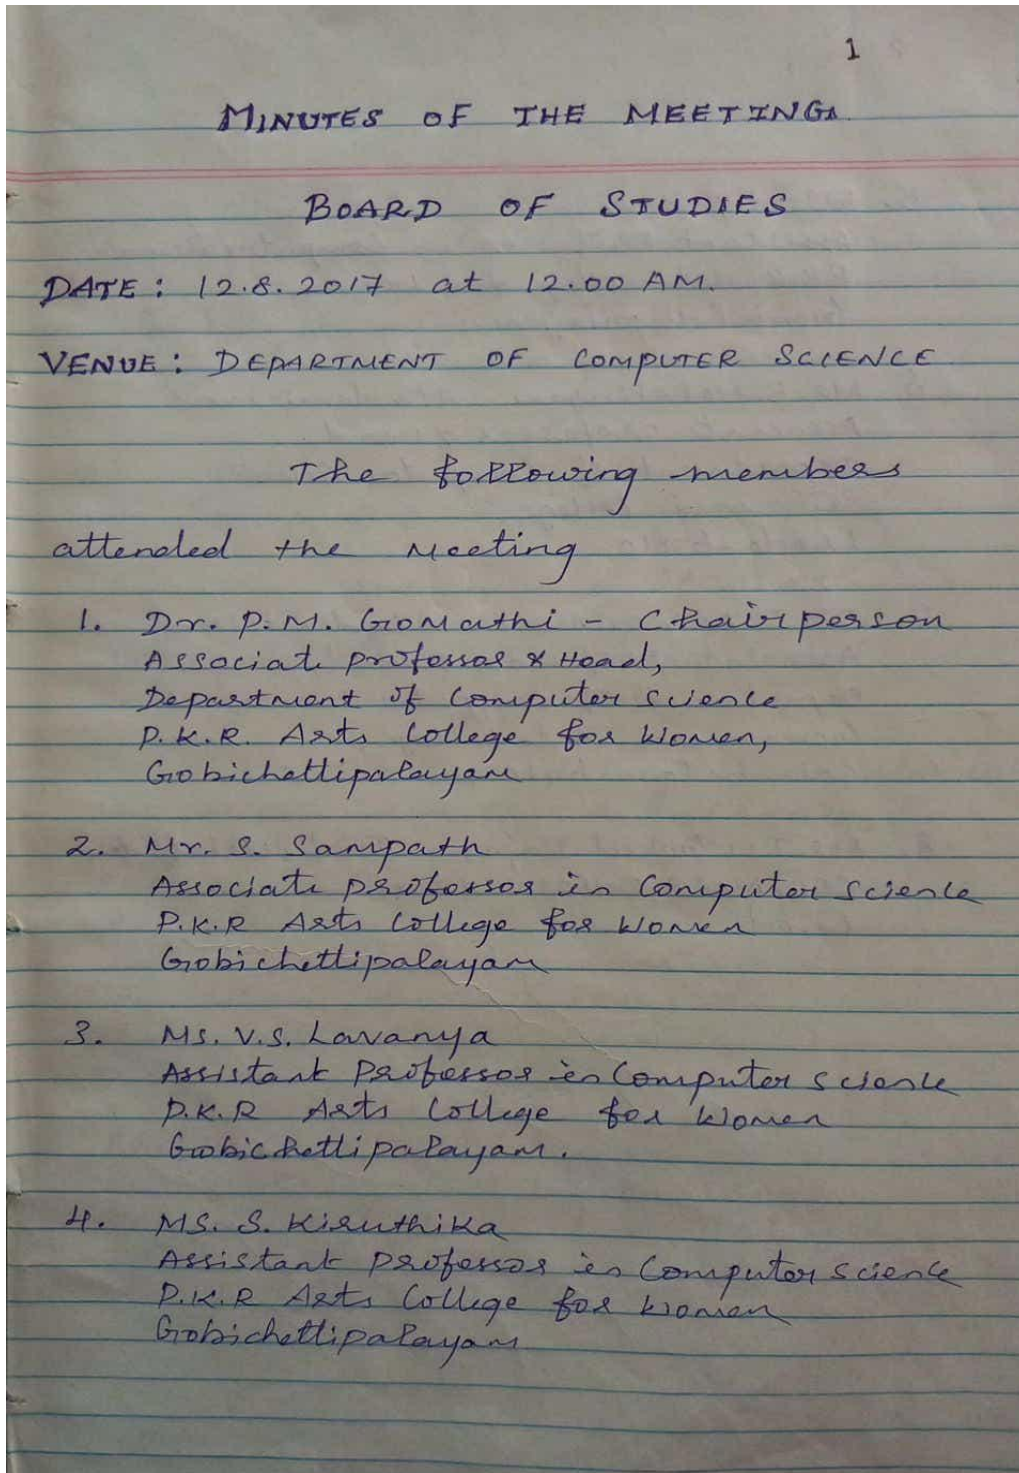 1
MINUTES OF THE MEETING
BOARD OF STUDIES
DATE : 12.8.2017 at 12.00 AM.
VENUE : DEPARTMENT OF COMPUTER SCIENCE
The following members
attended the Meeting
1. Dr. P.M. Gomathi - Chairperson
Associate professor & Head,
Department of Computer Science
P.K.R. Arts College for Women,
Gobichettipalayam
2. Mr. S. Sampath
Associate professor in Computer Science
P.K.R Arts College for Women
Gobichettipalayam
3. Ms. V.S. Lavanya
Assistant Professor in Computer Science
P.K.R Arts College for Women
Gobichettipalayam.
4. MS. S. Kiruthika
Assistant professor in Computer Science
P.K.R Arts College for Women
Gobichettipalayam